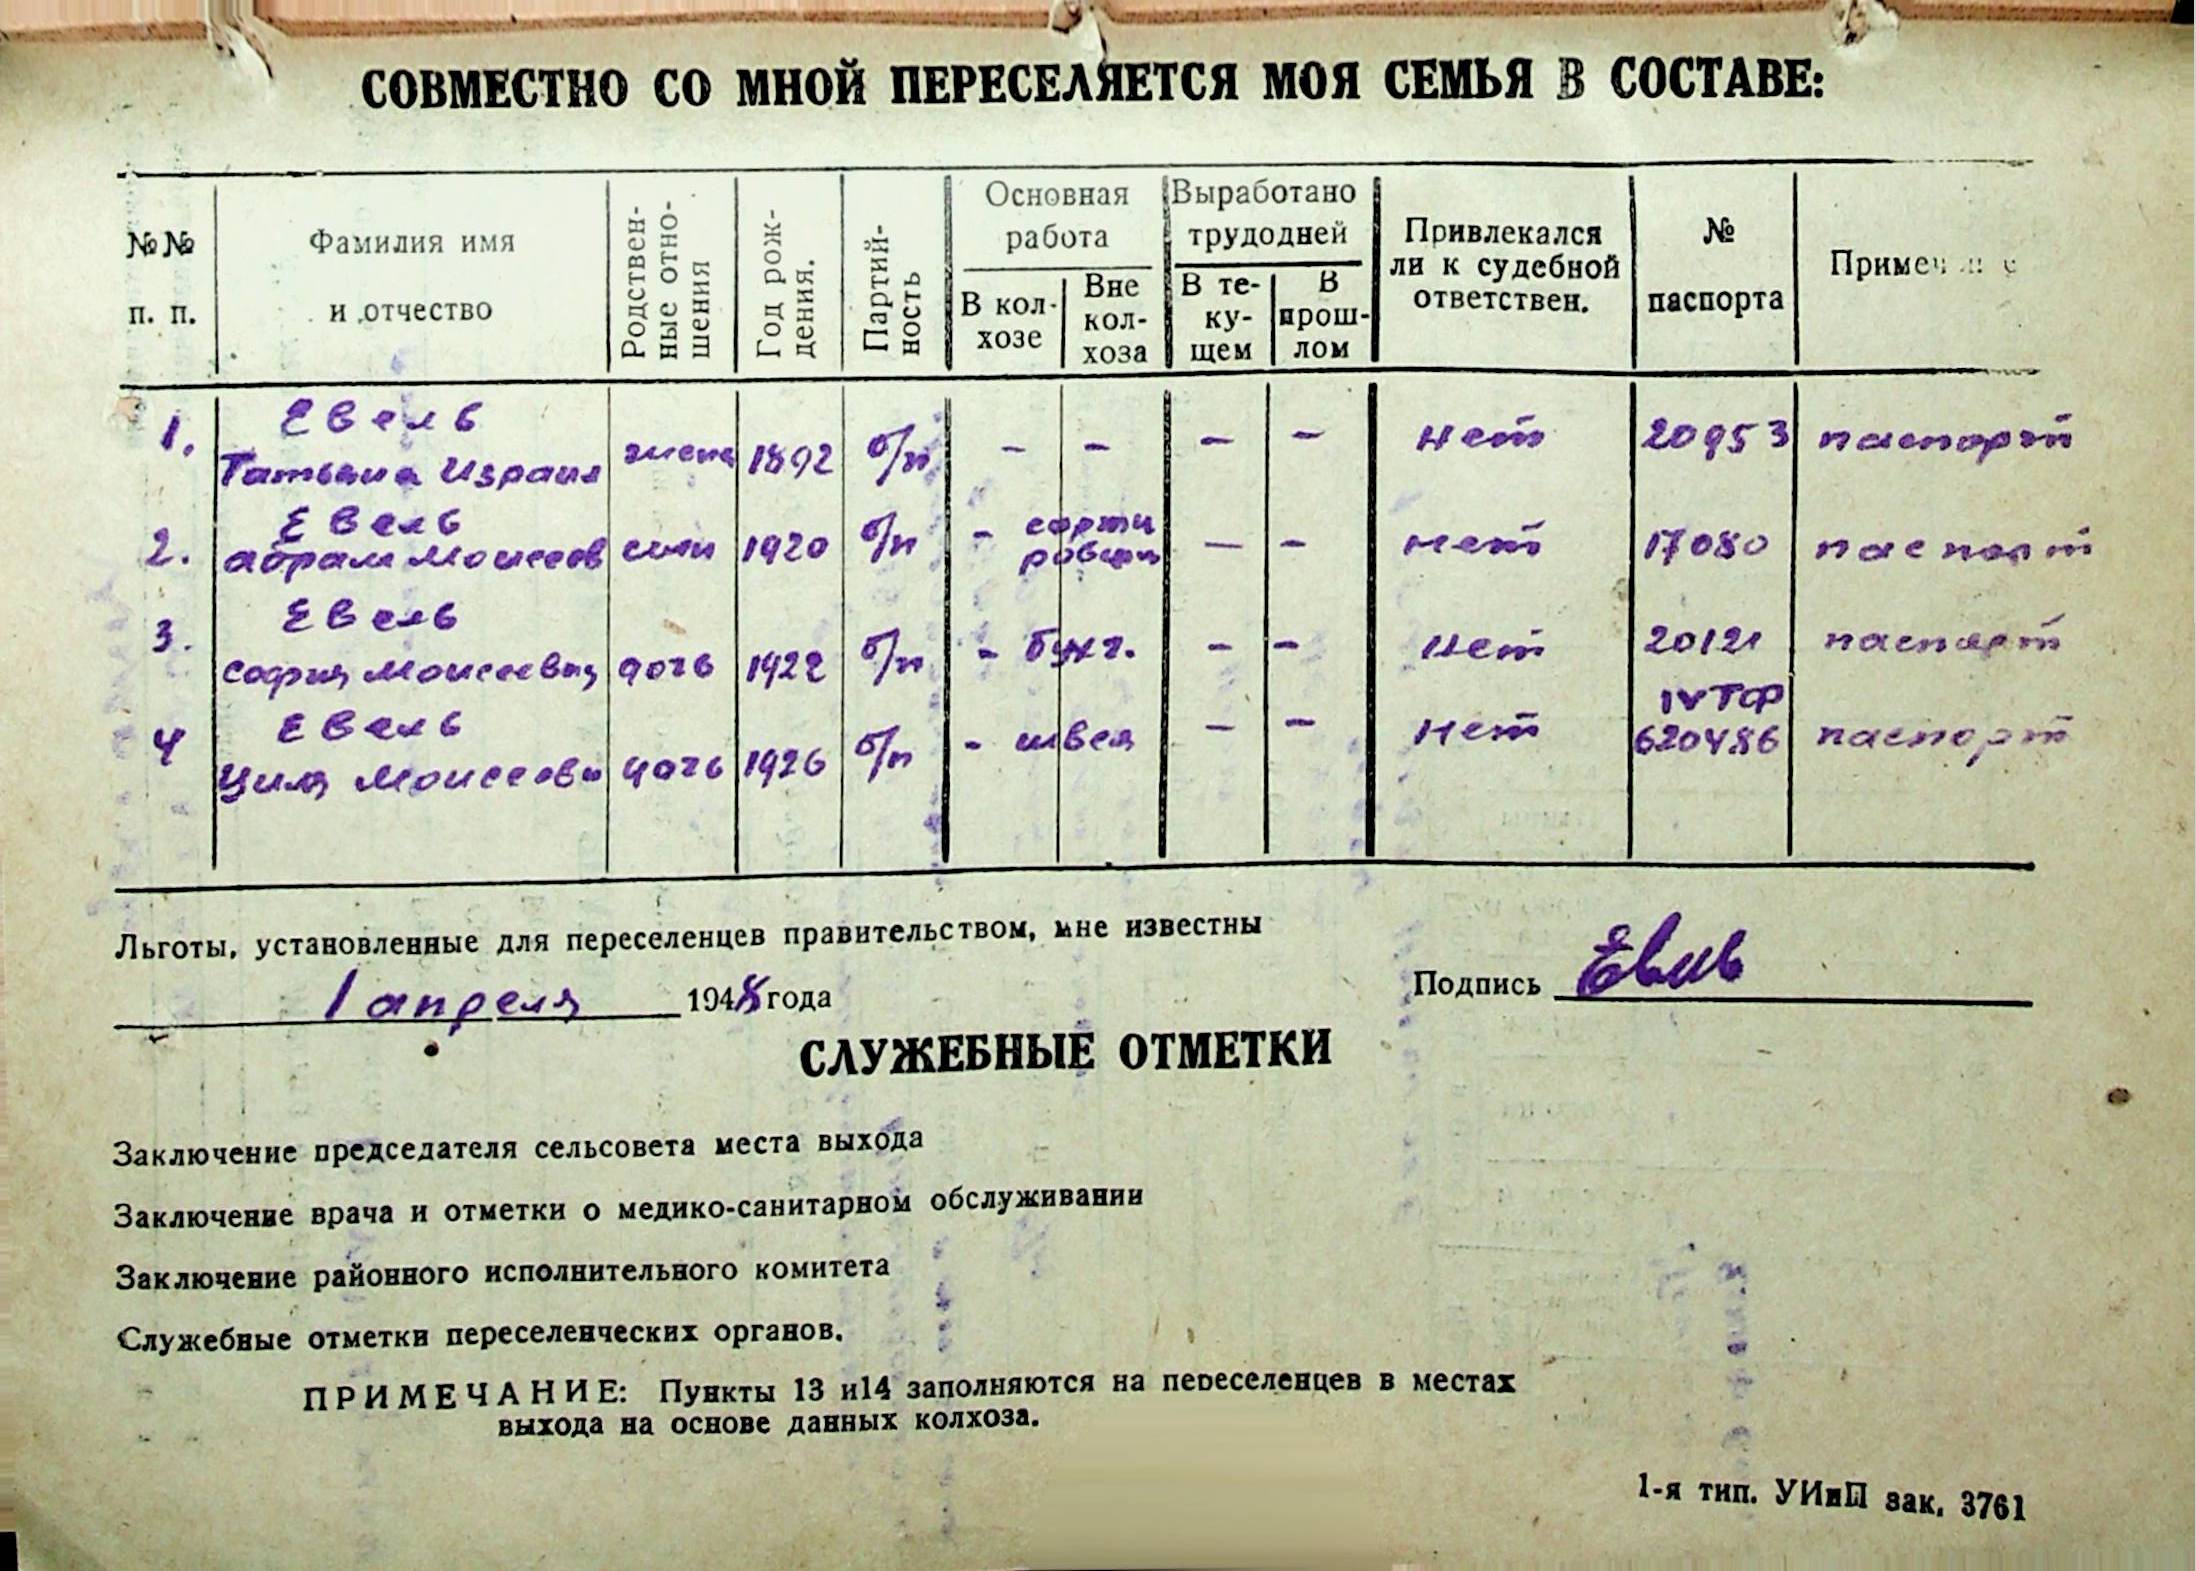 СОВМЕСТНО СО МНОЙ ПЕРЕСЕЛЯЕТСЯ МОЯ СЕМЬЯ В СОСТАВЕ:
№№ п. п.
Фамилия имя и отчество
Родствен-
ные отно-
шения
Год рож-
дения.
Партий-
ность
Основная
работа
В кол-
хозе
Вне
кол-
хоза
Выработано
трудодней
В те-
ку-
щем
В
прош-
лом
Привлекался
ли к судебной
ответствен.
№
паспорта
1. Евель
Татьяна Израил жена 1892 б/п - - - - Нет 20953 паспорт
2. Евель
Абрам Моисеев сын 1920 б/п - сорти
ровщик - - Нет 17080 паспорт
3. Евель
София Моисеевна дочь 1922 б/п - бухг. - - Нет 20121 паспорт
4 Евель
Циля Моисеевн дочь 1926 б/п - швея - - Нет IV ТФ
620486 паспорт
Льготы, установленные для переселенцев правительством, мне известны
1 апреля 1948 года
Подпись Евель
СЛУЖЕБНЫЕ ОТМЕТКИ
Заключение председателя сельсовета места выхода
Заключение врача и отметки о медико-санитарном обслуживании
Заключение районного исполнительного комитета
Служебные отметки переселенческих органов.
ПРИМЕЧАНИЕ: Пункты 13 и14 заполняются на переселенцев в местах
выхода на основе данных колхоза.
1-я тип. УИиП зак. 3761